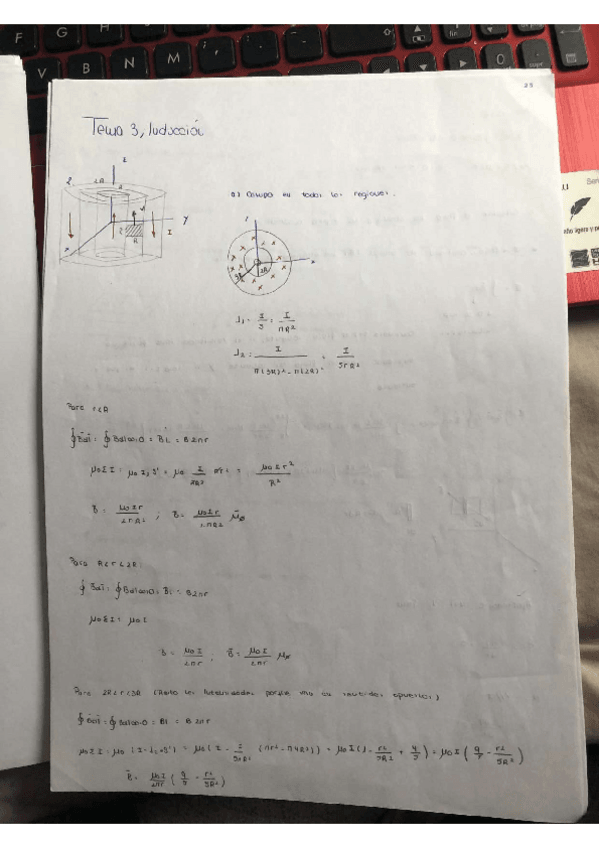 F G H
V B N M
23
Tema 3, Inducción
z
2R
y
I
R
a) Campo en todas las regiones.
x
2R
3R
J₁ = I/S = I/πR²
J₂ = I/(π(3R)² - π(2R)²) = I/5πR²
Para r<R
∮B̄dl̄ = ∮Bdlcos0 = BL = B2πr
μ₀ΣI = μ₀J₁S' = μ₀ I/πR² πr² = μ₀Ir²/R²
B = μ₀Ir/2πR² ; B̄ = μ₀Ir/2πR² ūφ
Para R<r<2R
∮B̄dl̄ = ∮Bdlcos0 = BL = B2πr
μ₀ΣI = μ₀I
B = μ₀I/2πr , B̄ = μ₀I/2πr uφ
Para 2R<r<3R (Resto las porque van en sentidos opuestos)
∮B̄dl̄ = ∮Bdlcos0 = BL = B2πr
μ₀ΣI = μ₀(I-J₂S') = μ₀(I - I/5πR² (πr²-π4R²)) = μ₀I(1 - r²/5R² + 4/5) = μ₀I(9/5 - r²/5R²)
B̄ = μ₀I/2πr (9/5 - r²/5R²)